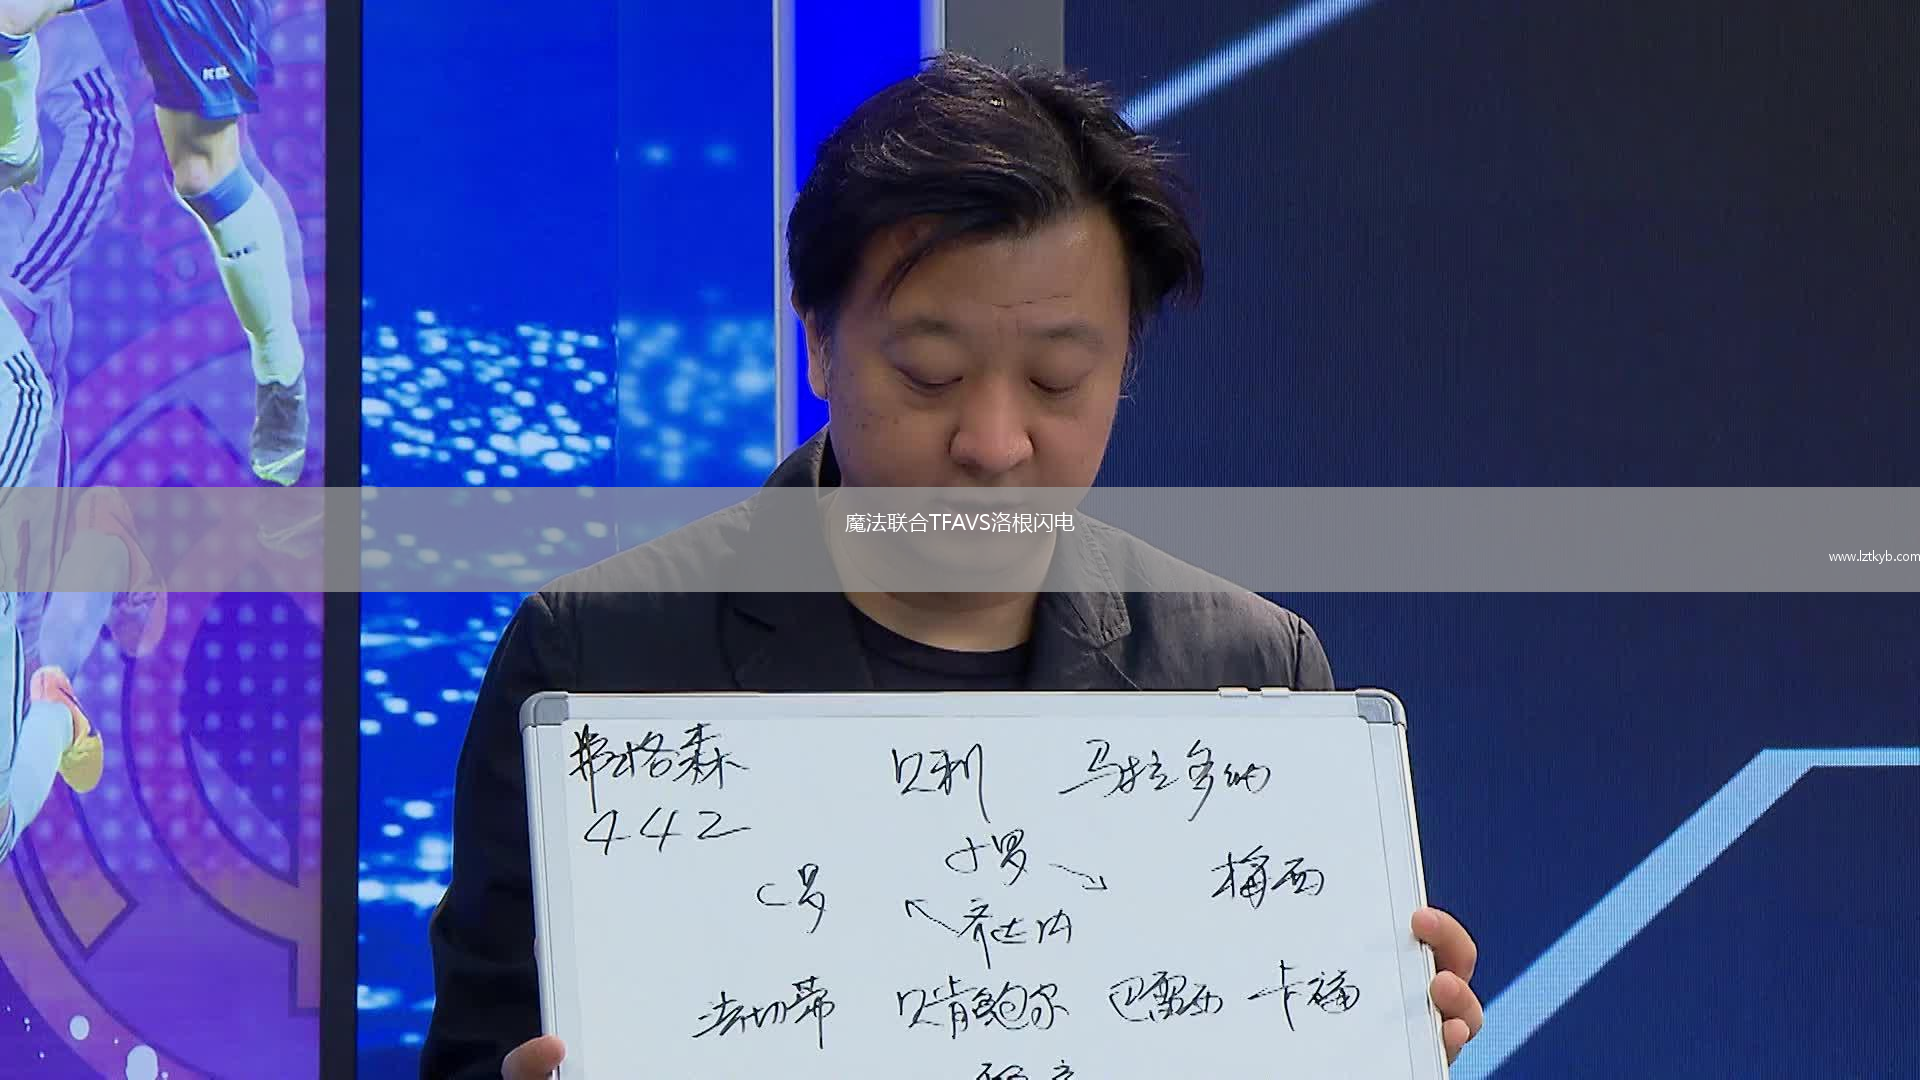 魔法联合TFAVS洛根闪电
www.lztkyb.com
弗格森 贝利 马拉多纳
442
小罗
C罗 梅西
齐达内
法切蒂 贝肯鲍尔 巴雷西 卡福